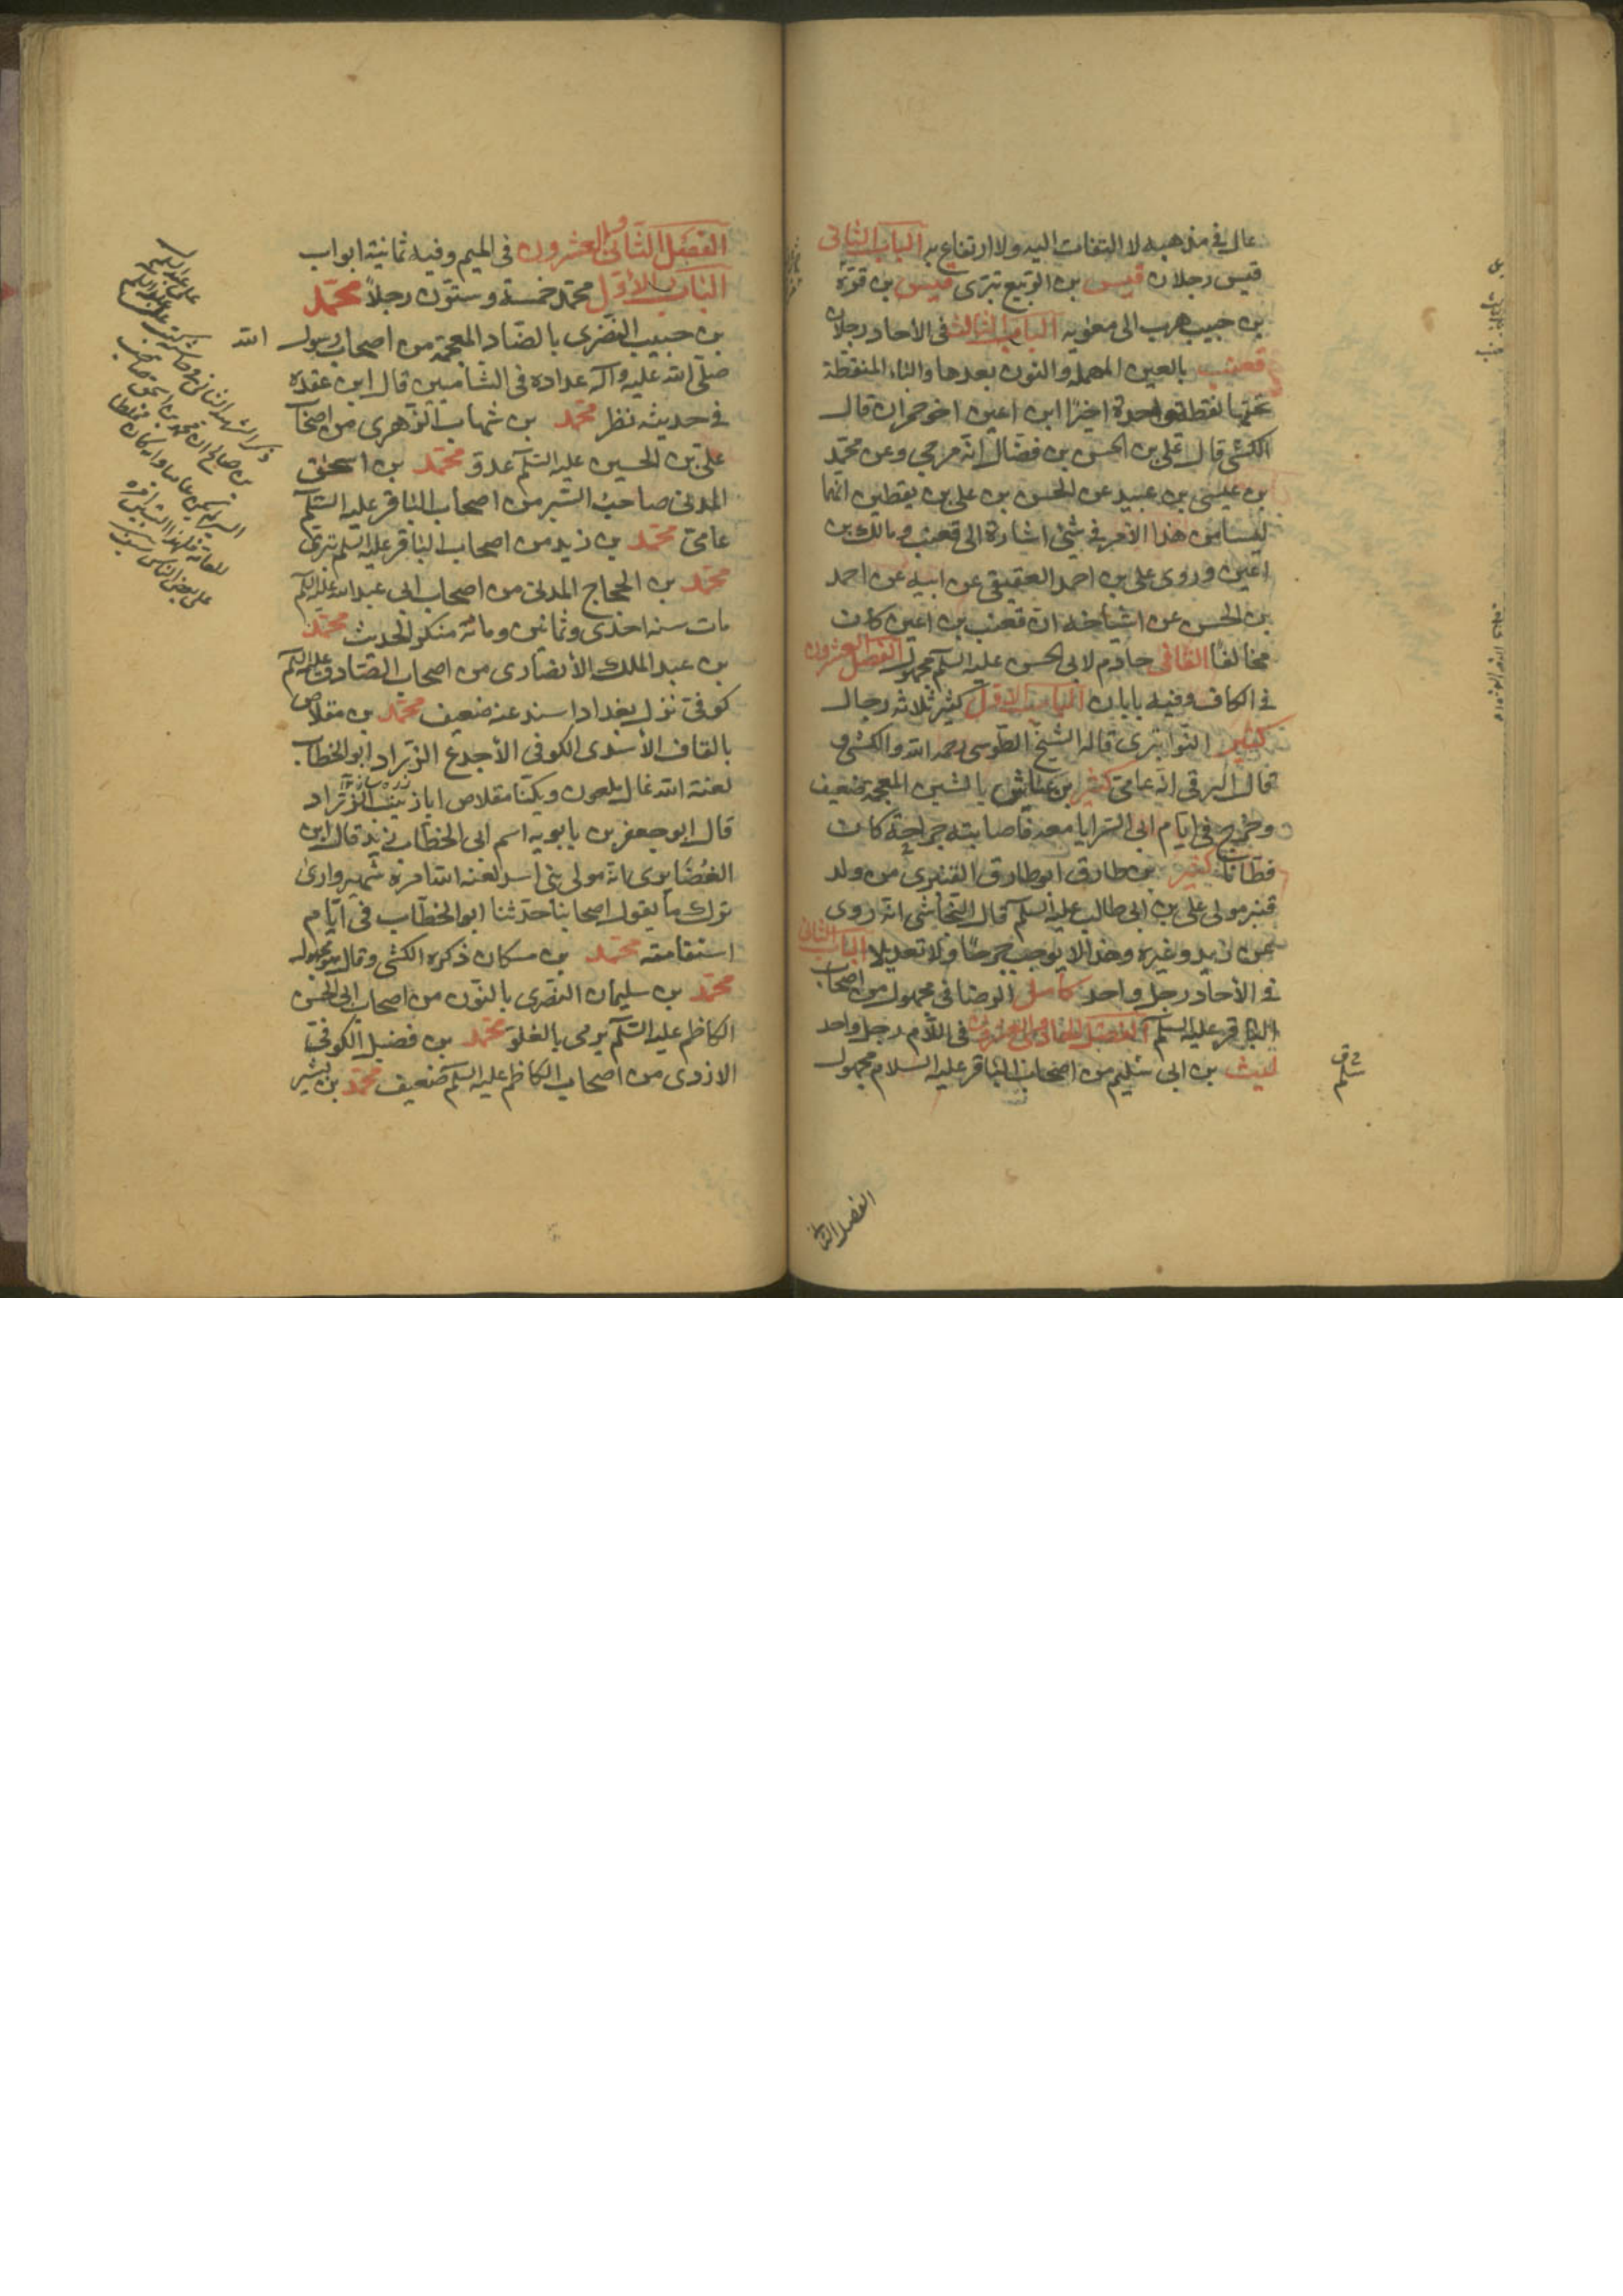 غال في مذهبه لا التفات اليه ولا ارتفاع به الباب الثاني
قيس رجلان قيس بن الربيع بترى قيس بن قرة
بن حبيب هرب الى معويه الباب الثالث في الاحاد رجلان
قعنب بالعين المهملة والنون بعدها والباء المنقطة
تحتها نقطة واحدة اخيرًا ابن اعين اخو حمران قال
الكشى قال على بن الحسن بن فضال انه مرجى وعن محمد
بن عيسى بن عبيد عن الحسن بن على بن يقطين انهما
ليسا من هذا الأمر في شئ اشارة الى قعنب ومالك بن
اعين وروى على بن احمد العقيقى عن ابيه عن احمد
بن الحسن عن اشياخه ان قعنب بن اعين كان
مخالفًا خادم لابى الحسن عليه السلم مجهول الفصل العشرون
في الكاف وفيه بابان الباب الاول كثير ثلاثة رجال
كثير النوا بترى قاله الشيخ الطوسى رحمه الله والكشى و
قال البرقى انه عامى كثير بن عياش بالشين المعجمة ضعيف
وخرج في ايام ابى السرايا معه فاصابته جراحة كان
قطانا كثير بن طارق ابو طارق القنبرى من ولد
قنبر مولى على بن ابى طالب عليه السلم قال النجاشى انه روى
عن زيد وغيره وهذا لا يوجب جرحًا ولا تعديلا الباب الثانى
في الأحاد رجل واحد كامل الرصافى مجهول من اصحاب
الباقر عليه السلم الفصل الحادى العشرون في اللام رجل واحد
ليث بن ابى سليم من اصحاب الباقر عليه السلام مجهول
الفصل الثانى
الفصل الثاني والعشرون في الميم وفيه ثمانية ابواب
الباب الاول محمد خمسة وستون رجلاً محمد
بن حبيب النضرى بالضاد المعجمة من اصحاب رسول الله
صلى الله عليه وآله عداده في الشاميين قال ابن عقده
في حديثه نظر محمد بن شهاب الزهرى من اصحاب
على بن الحسين عليه السلم عدو محمد بن اسحق
المدنى صاحب السير من اصحاب الباقر عليه السلم
عامى محمد بن زيد من اصحاب الباقر عليه السلم بترى
محمد بن الحجاج المدنى من اصحاب ابى عبد الله عليه السلم
مات سنه احدى وثمانين ومائه منكر الحديث محمد
بن عبد الملك الأنصارى من اصحاب الصادق عليه السلم
كوفى نزل بغداد اسند عنه ضعيف محمد بن مقلاص
بالقاف الأسدى الكوفى الأجدع الزراد ابو الخطاب
لعنه الله غال ملعون ويكنا مقلاص ابا زينب الزراد
قال ابو جعفر بن بابويه اسم ابى الخطاب زيد قال ابن
الغضايرى انه مولى بنى اسد لعنه الله امره شهير وارى
ترك ما يقول اصحابنا حدثنا ابو الخطاب في ايام
استقامته محمد بن مسكان ذكره الكشى وقال هو مجهول
محمد بن سليمان النصرى بالنون من اصحاب ابى الحسن
الكاظم عليه السلم يرمى بالغلو محمد بن فضيل الكوفى
الازدى من اصحاب الكاظم عليه السلم ضعيف محمد بن بشير